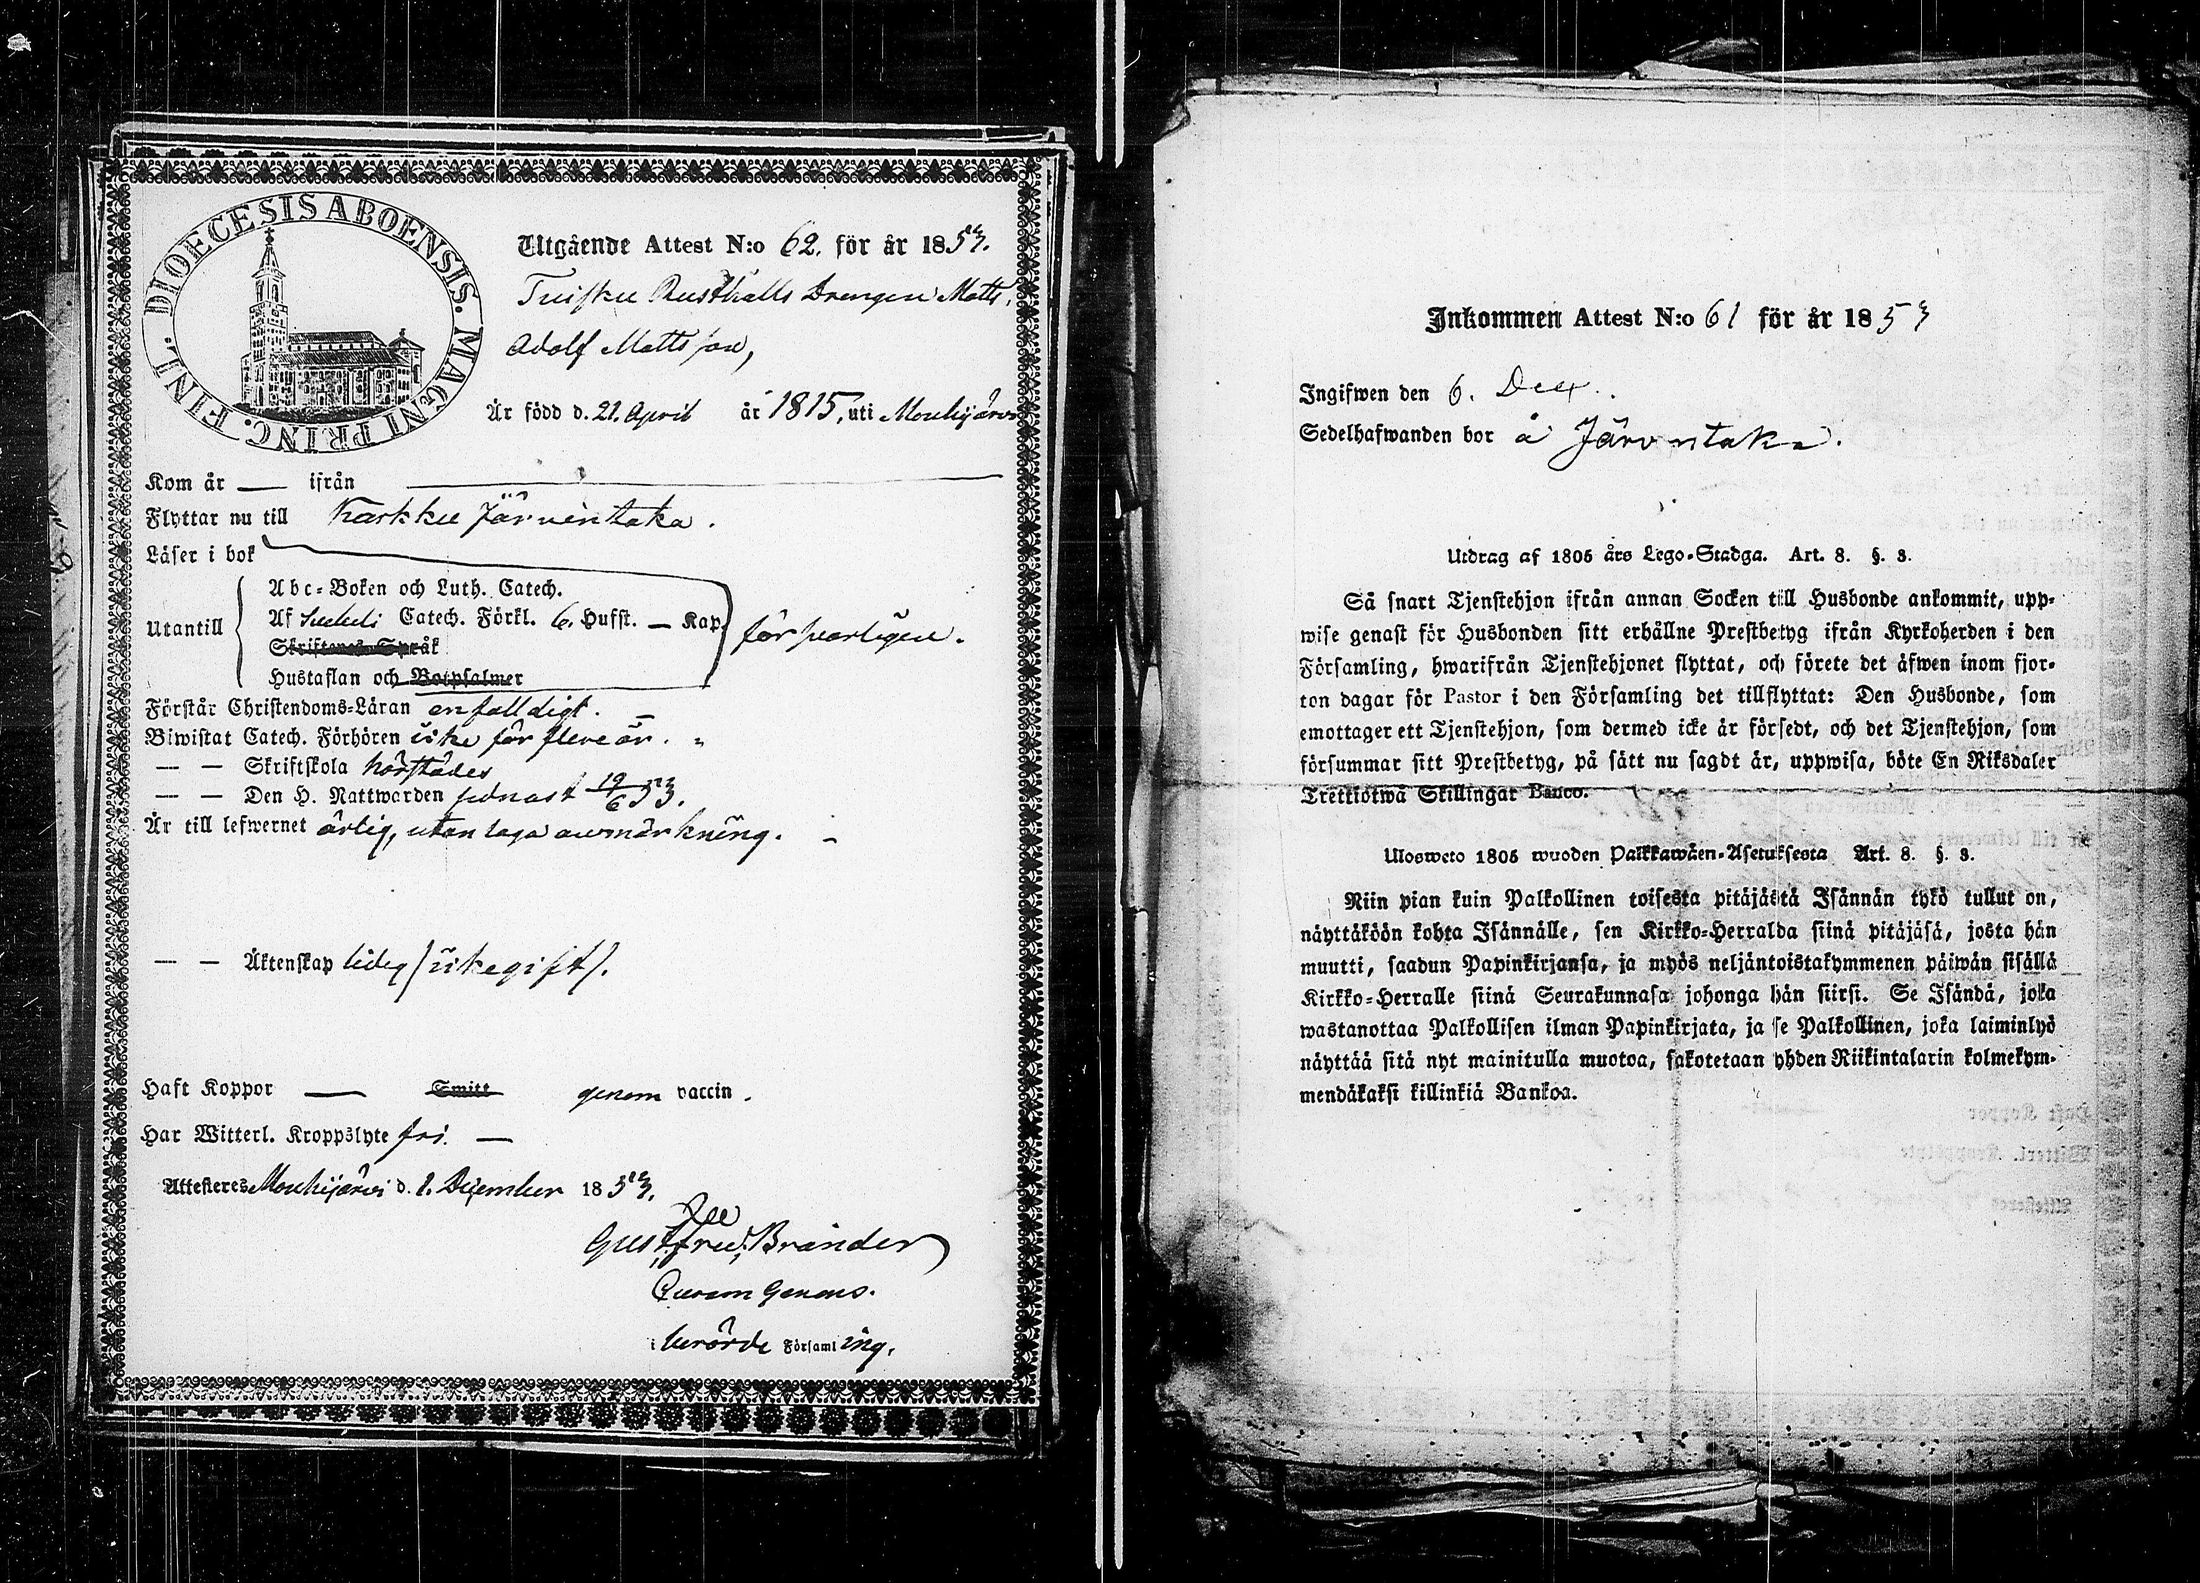 DIOECESIS ABOENSIS. MAGNI PRINC. FINL.
Utgående Attest N:o 62. för år 1853.
Rusthålls Drengen Matts
Adolf Mattsson,
Är född d. 21. April år 1815, uti Mouhijärvi
Kom år — ifrån —
Flyttar nu till Karkku Järventaka.
Läser i bok
Utantill
Abc-Boken och Luth. Catech.
Af Catech. Förkl. 6. Hufst. — Kap.
Skriftenes Språk
Hustaflan och Botpsalmer
försvarligen.
Förstår Christendoms-Läran enfalldigt. —
Biwistat Catech. Förhören icke för flere år. „
— — Skriftskola härstädes
— — Den H. Nattwarden sednast 19/6 53.
Är till lefwernet ärlig, utan laga anmärkning. —
— — Äktenskap ledig /ickegift/.
Haft Koppor — Smitt genom vaccin.
Har Witterl. Kroppslyte fri. —
Attesteres Mouhijärvi d. 1. December 1853.
Gust. Fred. Brander
Curam Gerens.
i berörde Församling.
Inkommen Attest N:o 61 för år 1853
Ingifwen den 6. Dec.
Sedelhafwanden bor å Järventaka.
Utdrag af 1805 års Lego-Stadga. Art. 8. §. 3.
Så snart Tjenstehjon ifrån annan Socken till Husbonde ankommit, upp-
wise genast för Husbonden sitt erhållne Prestbetyg ifrån Kyrkoherden i den
Församling, hwarifrån Tjenstehjonet flyttat, och förete det äfwen inom fjor-
ton dagar för Pastor i den Församling det tillflyttat: Den Husbonde, som
emottager ett Tjenstehjon, som dermed icke är försedt, och det Tjenstehjon, som
försummar sitt Prestbetyg, på sätt nu sagdt är, uppwisa, böte En Riksdaler
Trettiotwå Skillingar Banco.
Ulosweto 1805 wuoden Palkkawäen-Asetuksesta Art. 8. §. 3.
Niin pian kuin Palkollinen toisesta pitäjästä Isännän tykö tullut on,
näyttäköön kohta Isännälle, sen Kirkko-Herralda siinä pitäjäsä, josta hän
muutti, saadun Papinkirjansa, ja myös neljäntoistakymmenen päiwän sisällä
Kirkko-Herralle siinä Seurakunnasa johonga hän siirsi. Se Isändä, joka
wastanottaa Palkollisen ilman Papinkirjata, ja se Palkollinen, joka laiminlyö
näyttää sitä nyt mainitulla muotoa, sakotetaan yhden Riikintalarin kolmekym-
mendäkaksi killinkiä Bankoa.